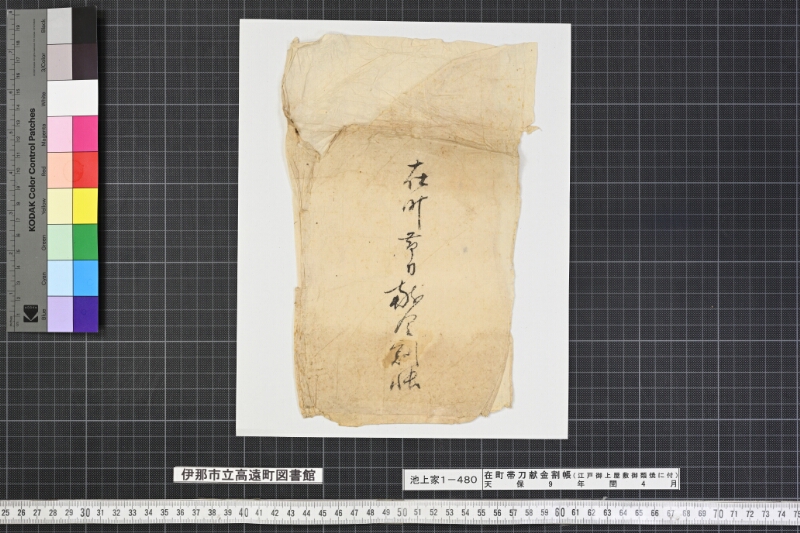 KODAK Color Control Patches
Black
3/Color
White
Magenta
Red
Yellow
Green
Cyan
Blue
Kodak
在町帯刀献金割帳
伊那市立高遠町図書館
池上家1-480
在町帯刀献金割帳(江戸御上屋敷御類焼に付)
天保9年閏4月
25 26 27 28 29 30 31 32 33 34 35 36 37 38 39 40 41 42 43 44 45 46 47 48 49 50 51 52 53 54 55 56 57 58 59 60 61 62 63 64 65 66 67 68 69 70 71 72 73 74 75